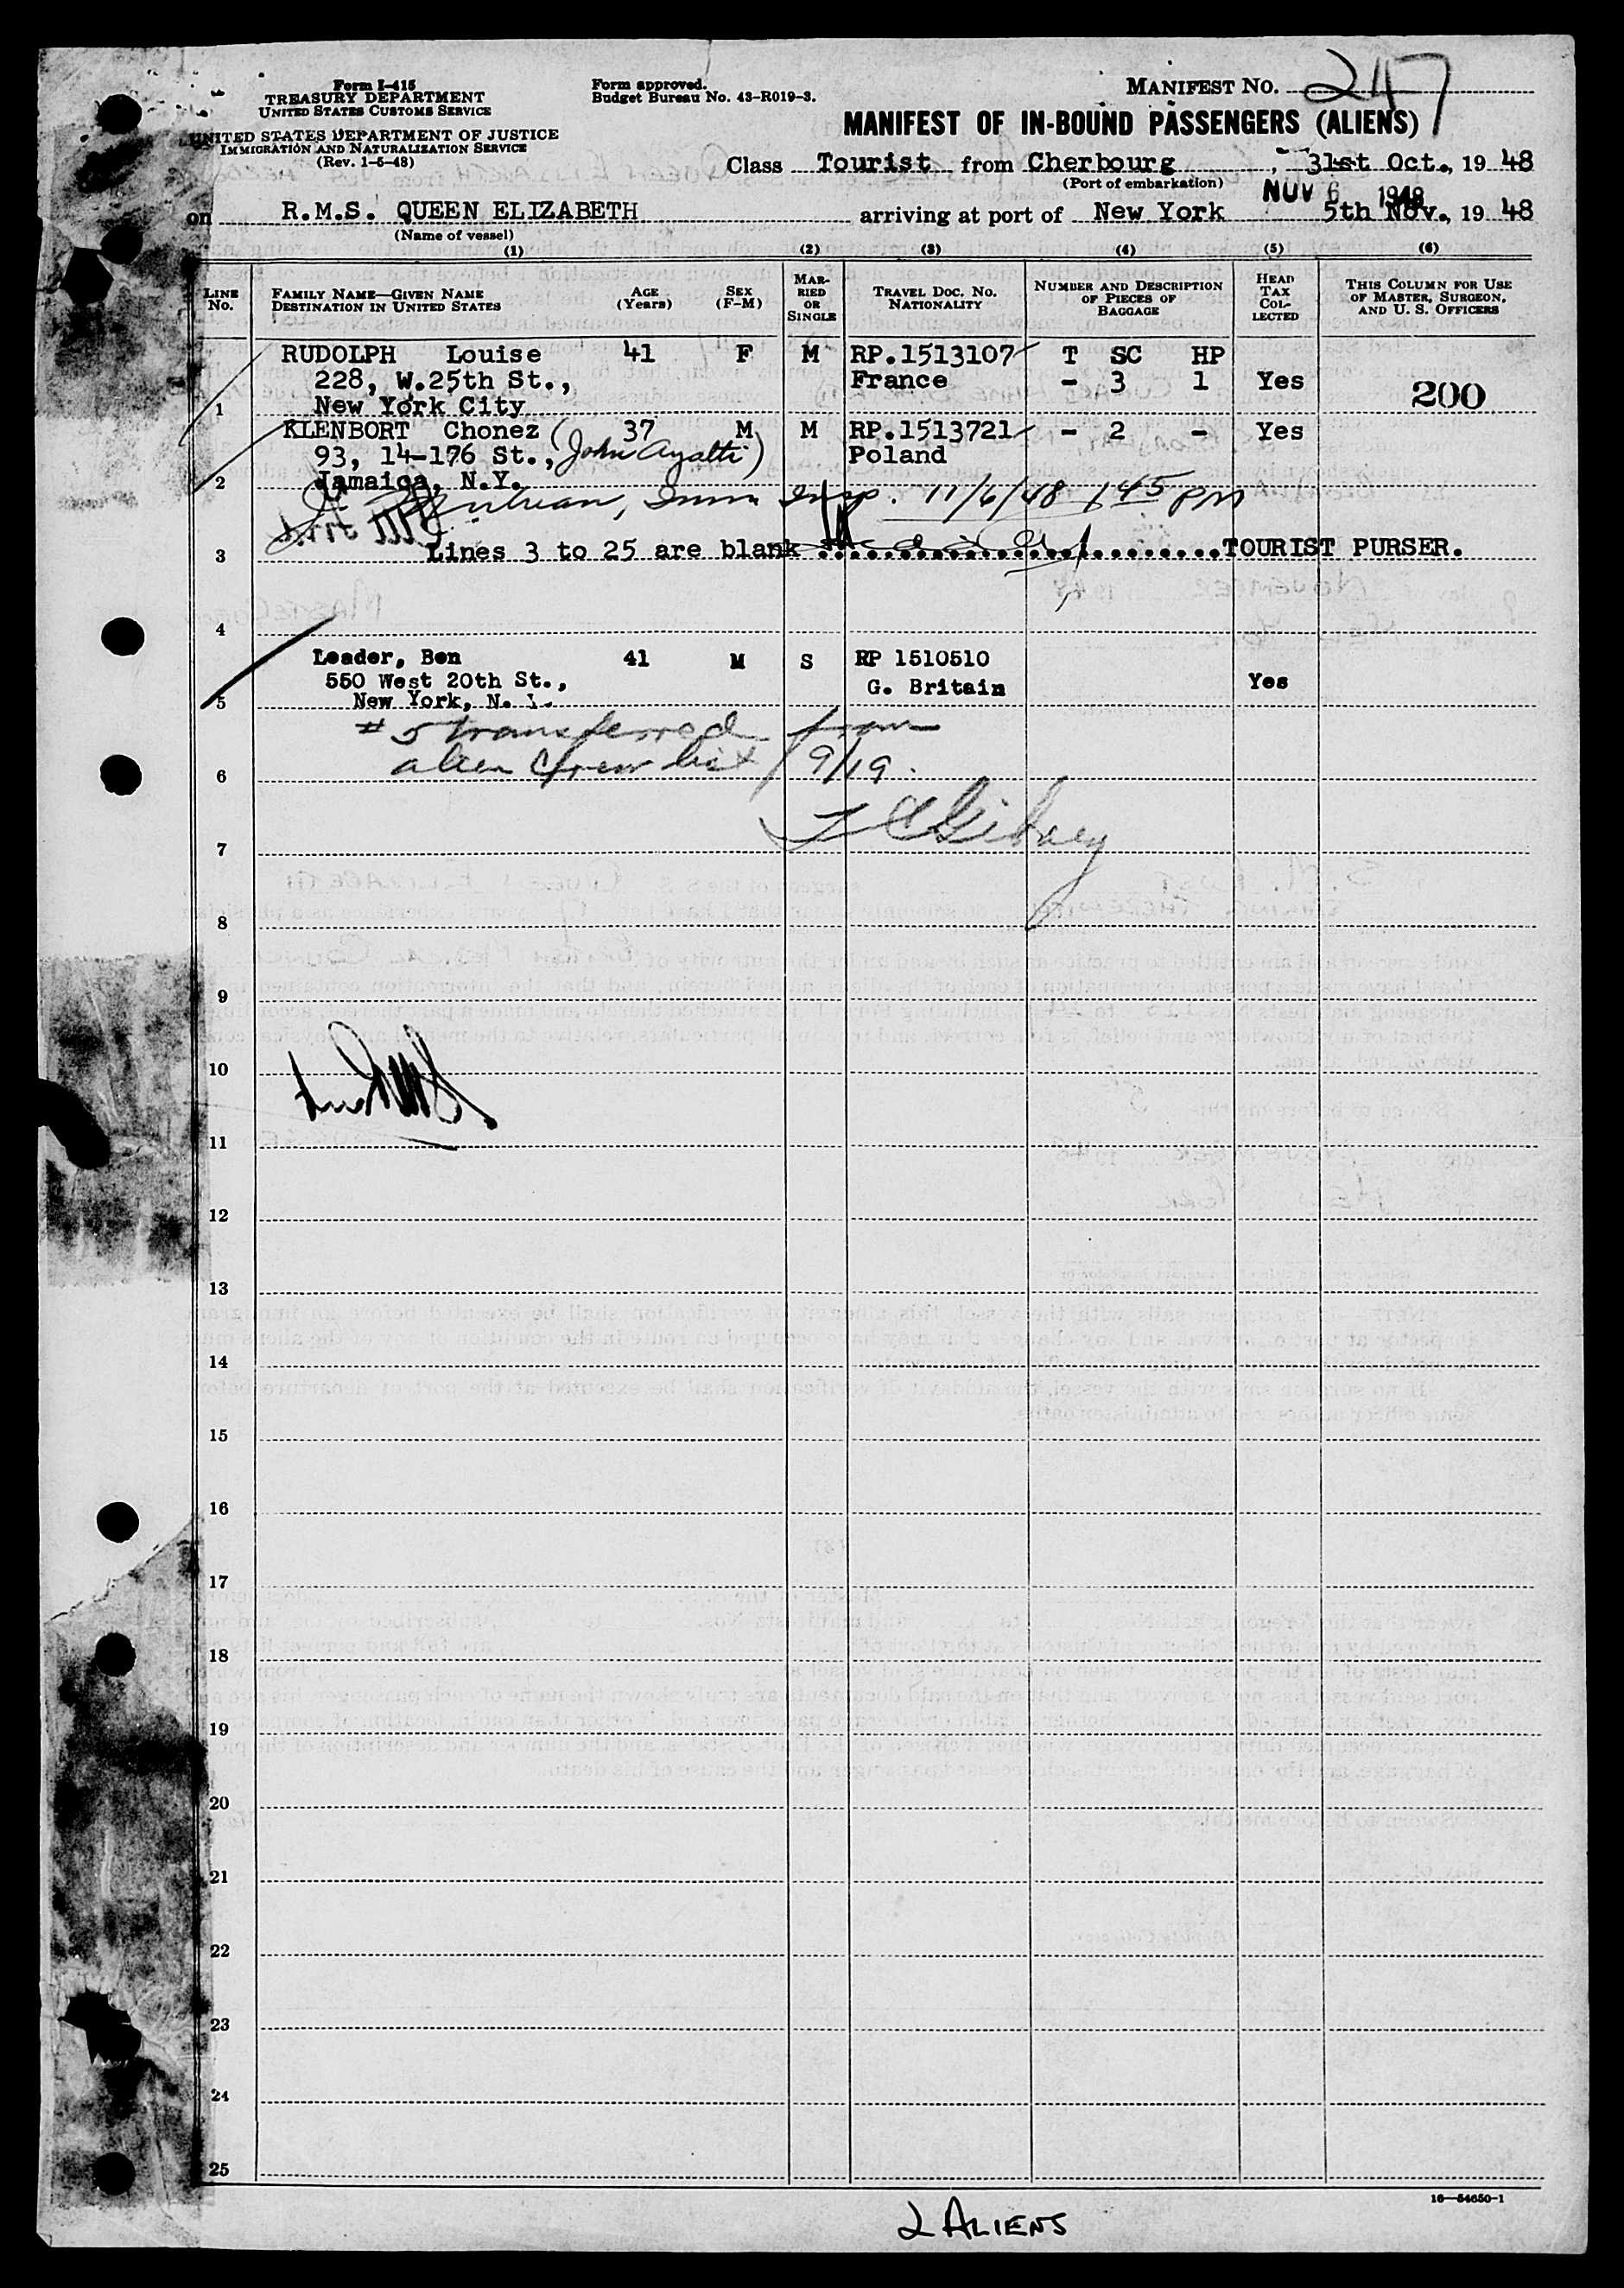 Form I-415
TREASURY DEPARTMENT
UNITED STATES CUSTOMS SERVICE
UNITED STATES DEPARTMENT OF JUSTICE
IMMIGRATION AND NATURALIZATION SERVICE
(Rev. 1-5-48)
Form approved.
Budget Bureau No. 43-R019-3.
MANIFEST NO. 247
MANIFEST OF IN-BOUND PASSENGERS (ALIENS)
Class Tourist from Cherbourg, 31st Oct., 19 48
(Port of embarkation)
NOV 6 1948
on R.M.S. QUEEN ELIZABETH arriving at port of New York 5th Nov., 19 48
(Name of vessel)
(1) (2) (3) (4) (5) (6)
LINE NO.
FAMILY NAME—GIVEN NAME
DESTINATION IN UNITED STATES
AGE (Years)
SEX (F-M)
MARRIED OR SINGLE
TRAVEL DOC. NO.
NATIONALITY
NUMBER AND DESCRIPTION OF PIECES OF BAGGAGE
HEAD TAX COLLECTED
THIS COLUMN FOR USE OF MASTER, SURGEON, AND U. S. OFFICERS
RUDOLPH Louise 41 F M RP.1513107 T SC HP
228, W.25th St., France - 3 1 Yes 200
1 New York City
KLENBORT Chonez 37 M M RP.1513721 - 2 - Yes
93, 14-176 St., (John Ayalti) Poland
2 Jamaica, N.Y.
Imm Insp. 11/6/48 145 PM
3 Lines 3 to 25 are blank TOURIST PURSER.
4
Leader, Ben 41 M S RP 1510510
550 West 20th St., G. Britain Yes
5 New York, N. Y.
# 5 transferred from
6 alien crew list 9/19.
7
8
9
10
11
12
13
14
15
16
17
18
19
20
21
22
23
24
25
16—54650-1
2 ALIENS